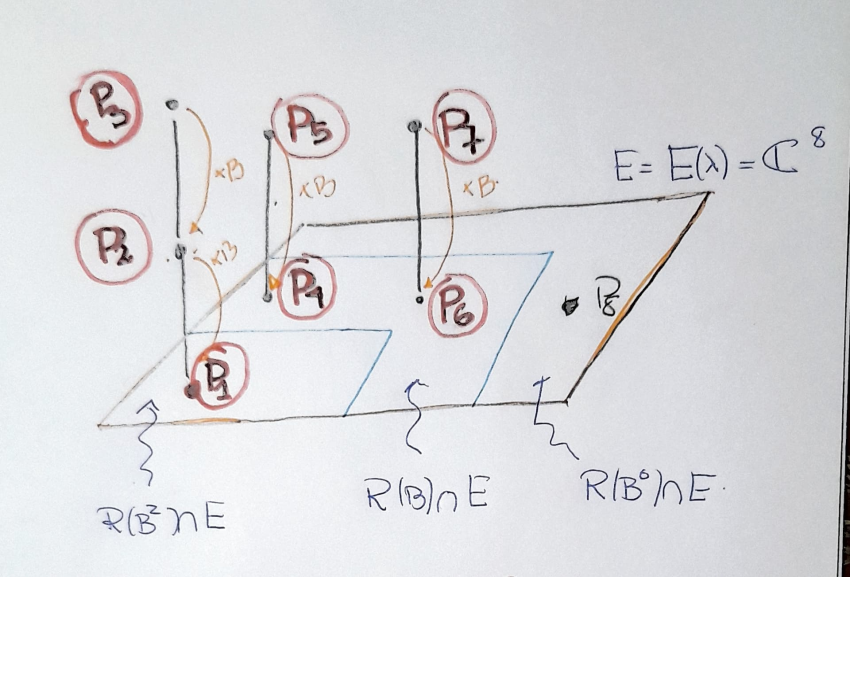 P3
P5
P7
E = E(λ) = ℂ⁸
×B
×B
×B.
P2
×B
P4
P6
P8
P1
R(B²)∩E
R(B)∩E
R(B⁰)∩E.